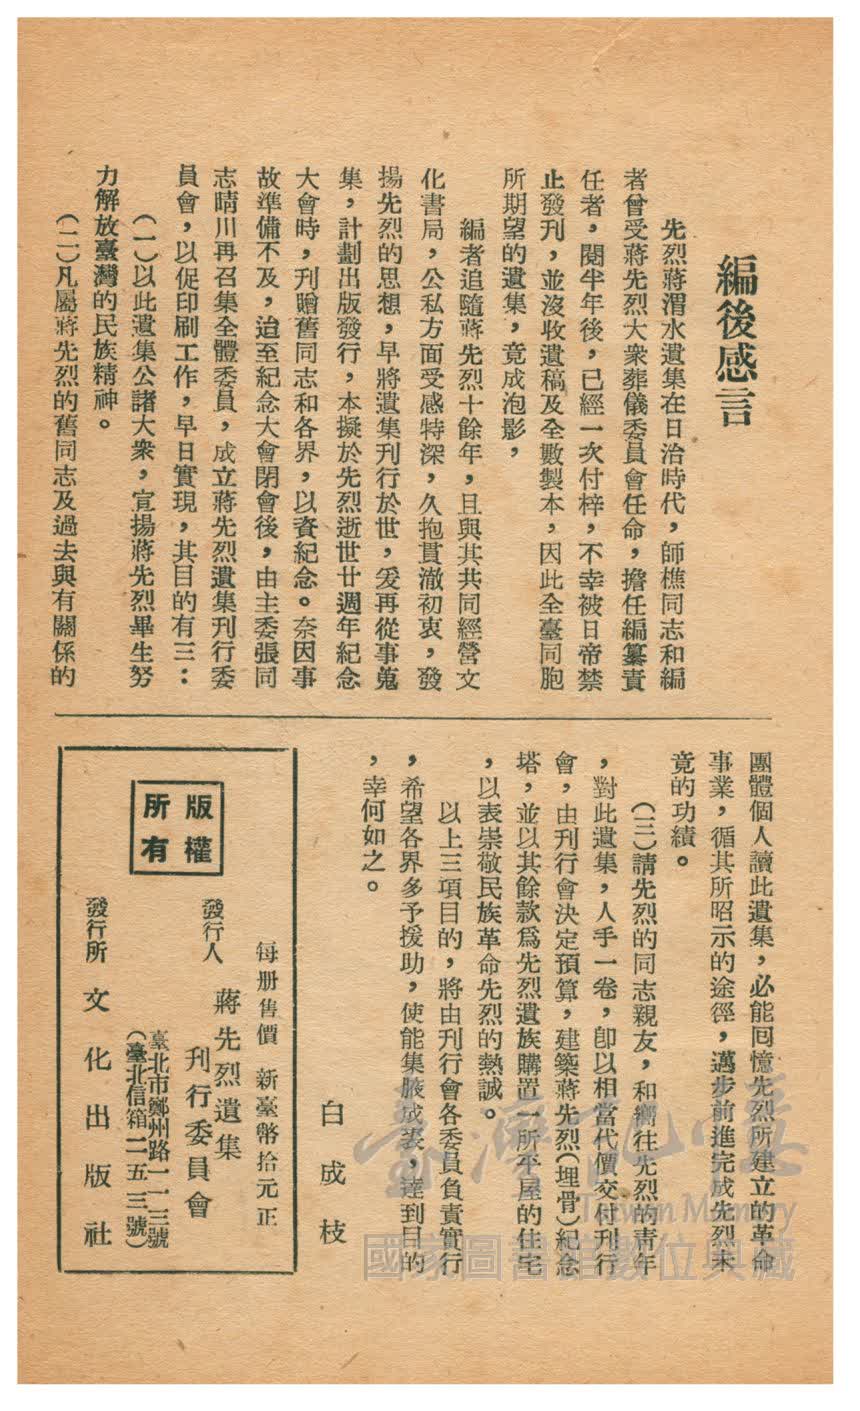 編後感言
先烈蔣渭水遺集在日治時代，師樵同志和編
者曾受蔣先烈大衆葬儀委員會任命，擔任編纂責
任者，閱半年後，已經一次付梓，不幸被日帝禁
止發刊，並沒收遺稿及全數製本，因此全臺同胞
所期望的遺集，竟成泡影，
編者追隨蔣先烈十餘年，且與其共同經營文
化書局，公私方面受感特深，久抱貫澈初衷，發
揚先烈的思想，早將遺集刊行於世，爰再從事蒐
集，計劃出版發行，本擬於先烈逝世廿週年紀念
大會時，刊贈舊同志和各界，以資紀念。奈因事
故準備不及，迨至紀念大會閉會後，由主委張同
志晴川再召集全體委員，成立蔣先烈遺集刊行委
員會，以促印刷工作，早日實現，其目的有三：
（一）以此遺集公諸大衆，宣揚蔣先烈畢生努
力解放臺灣的民族精神。
（二）凡屬蔣先烈的舊同志及過去與有關係的
團體個人讀此遺集，必能回憶先烈所建立的革命
事業，循其所昭示的途徑，邁步前進完成先烈未
竟的功績。
（三）請先烈的同志親友，和嚮往先烈的靑年
，對此遺集，人手一卷，卽以相當代價交付刊行
會，由刊行會決定預算，建築蔣先烈（埋骨）紀念
塔，並以其餘款爲先烈遺族購置一所平屋的住宅
，以表崇敬民族革命先烈的熱誠。
以上三項目的，將由刊行會各委員負責實行
，希望各界多予援助，使能集腋成裘，達到目的
，幸何如之。
白成枝
每册售價 新臺幣拾元正
版權
所有
發行人 蔣先烈遺集
刊行委員會
臺北市鄭州路一一三號
（臺北信箱二五三號）
發行所 文化出版社
臺灣記憶
Taiwan Memory
國家圖書館數位典藏